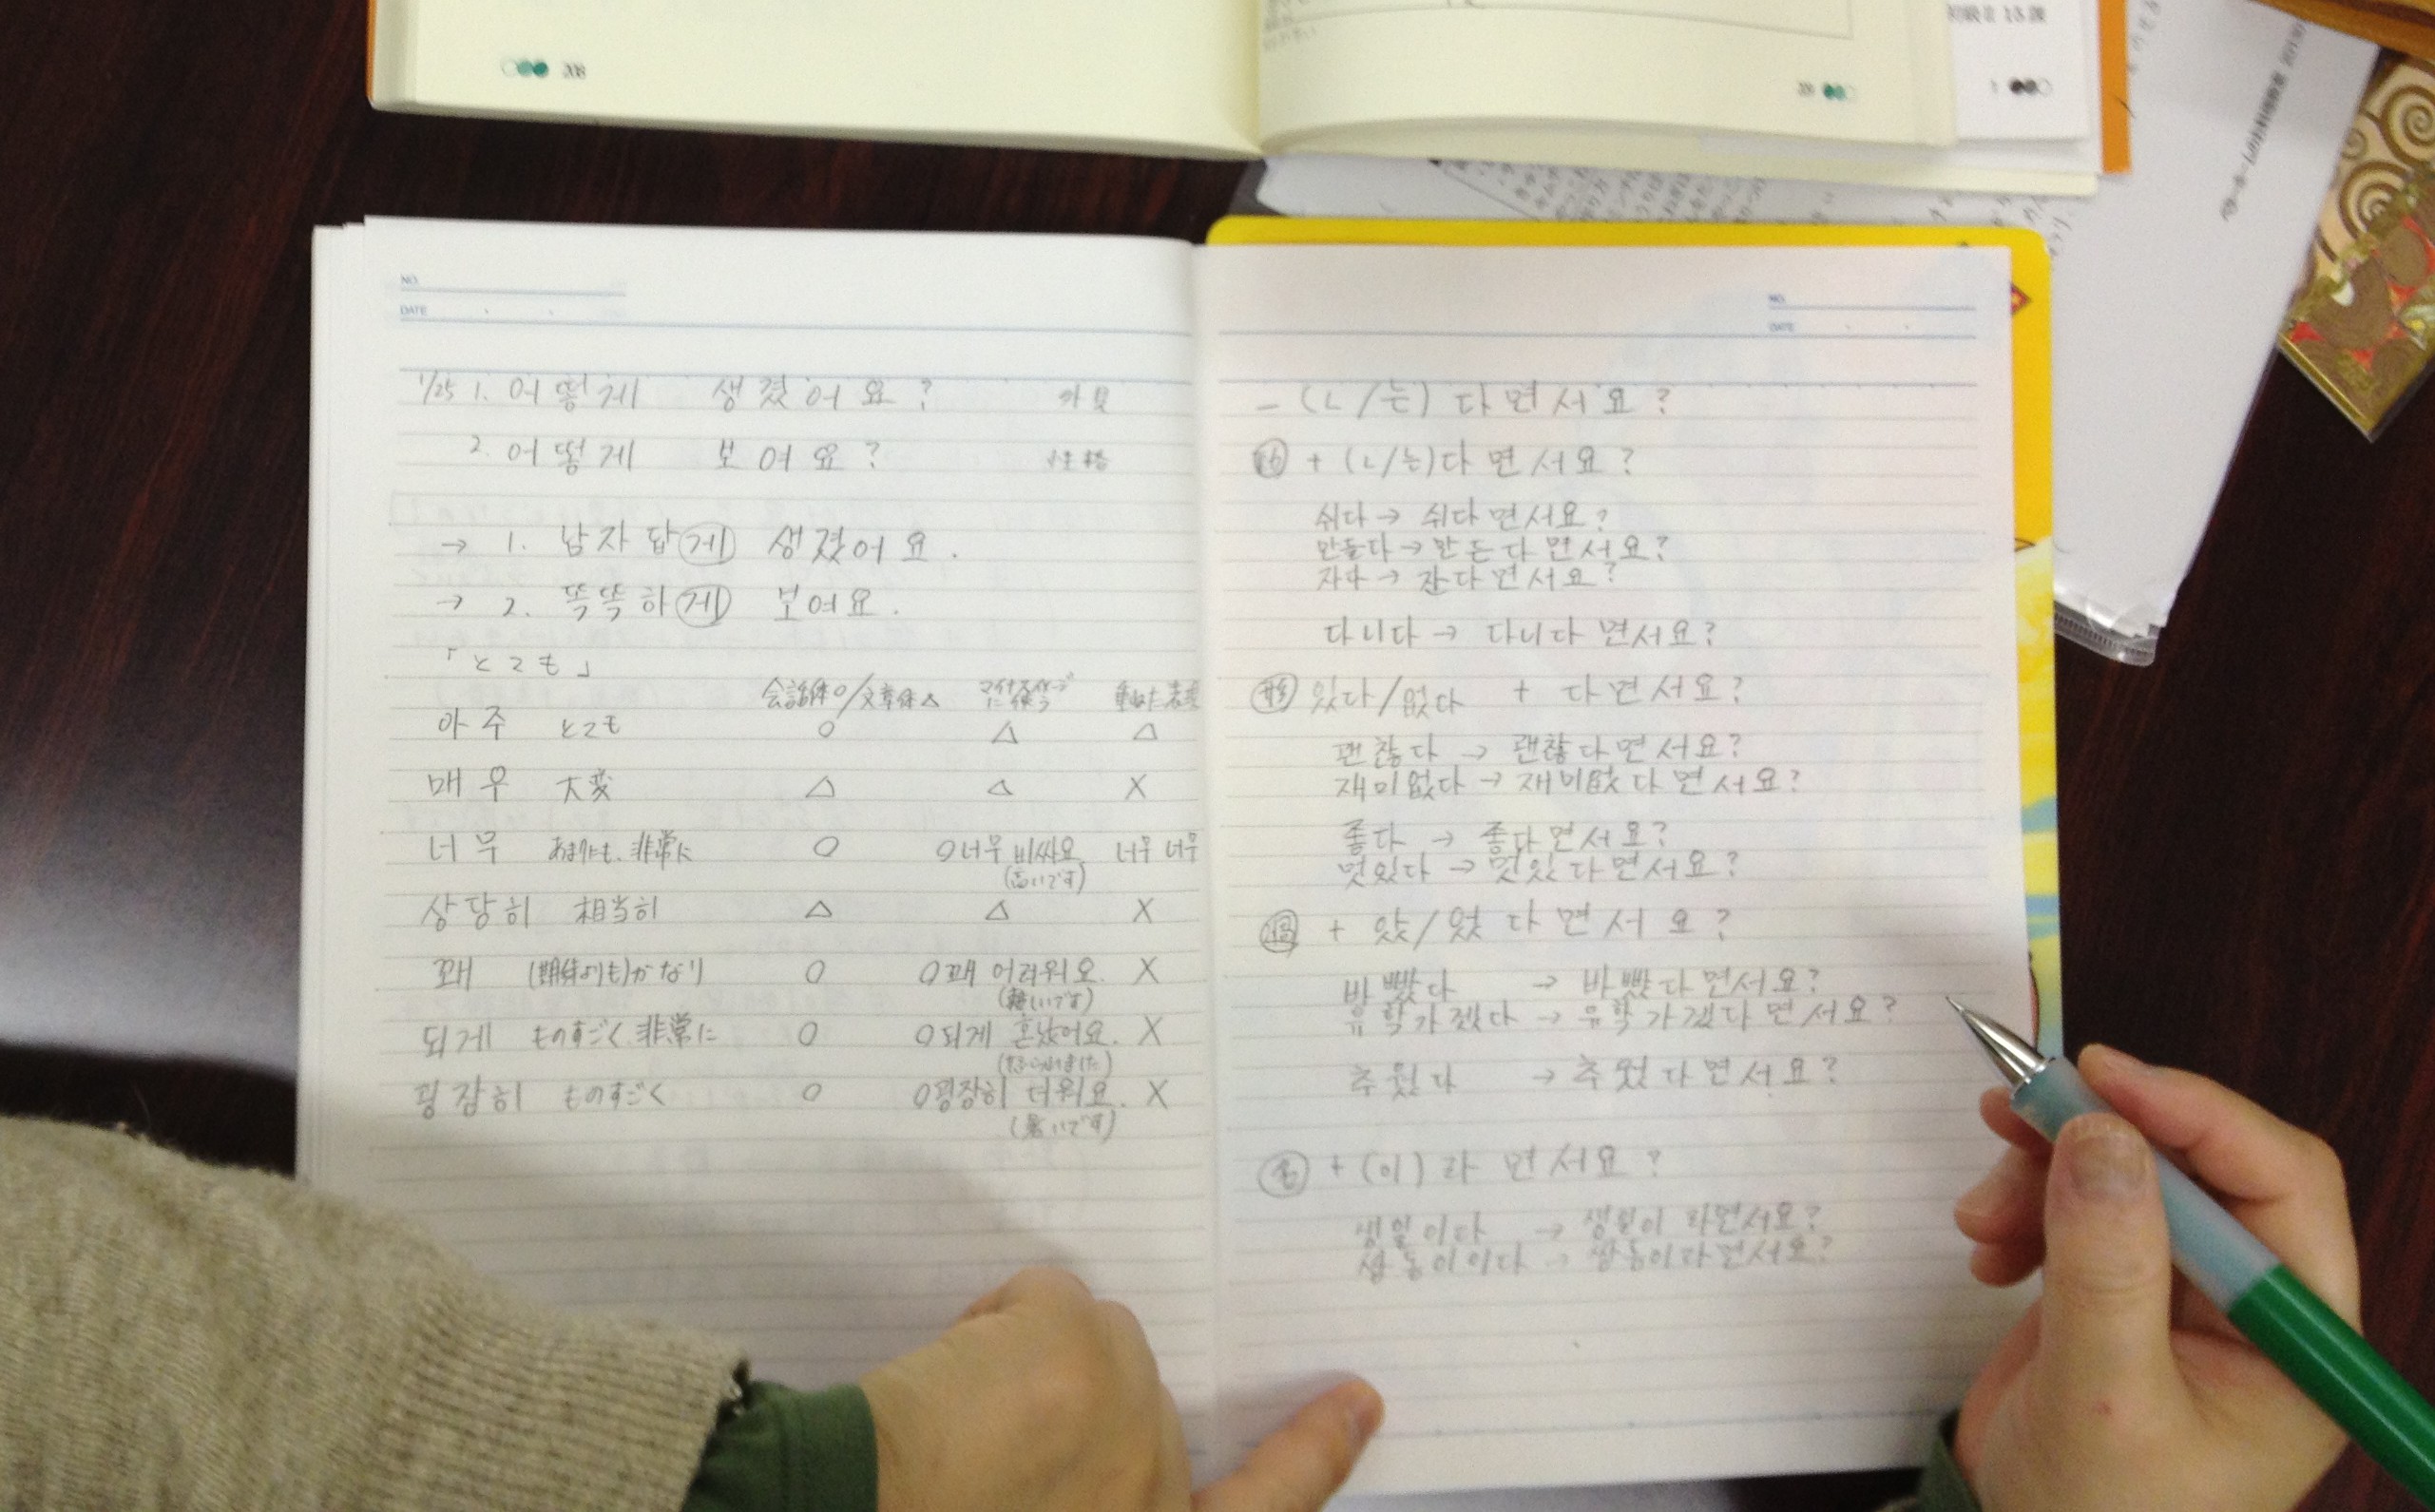 208
209
初級Ⅱ 13課
1
NO.
DATE
1/25 1. 어떻게 생겼어요? 외見
2. 어떻게 보여요? 性格
→ 1. 남자답게 생겼어요.
→ 2. 똑똑하게 보여요.
「とても」
会話体○/文章体△ マイナスイメージに使う 重ねた表現
아주 とても ○ △ △
매우 大変 △ △ X
너무 あまりにも、非常に ○ ○너무 비싸요 너무 너무
(高いです)
상당히 相当히 △ △ X
꽤 (期待よりも)かなり ○ ○꽤 어려워요. X
(難しいです)
되게 ものすごく、非常に ○ ○되게 혼났어요. X
(怒られました)
굉장히 ものすごく ○ ○굉장히 더워요. X
(暑いです)
NO.
DATE
- (ㄴ/는) 다면서요?
動 + (ㄴ/는)다면서요?
쉬다 → 쉬다면서요?
만들다 → 만든다면서요?
자다 → 잔다면서요?
다니다 → 다니다면서요?
形 있다/없다 + 다면서요?
괜찮다 → 괜찮다면서요?
재미없다 → 재미없다면서요?
좋다 → 좋다면서요?
멋있다 → 멋있다면서요?
過 + 았/었다면서요?
바빴다 → 바빴다면서요?
유학가겠다 → 유학가겠다면서요?
추웠다 → 추웠다면서요?
名 + (이)라면서요?
생일이다 → 생일이라면서요?
쌍동이이다 → 쌍동이라면서요?